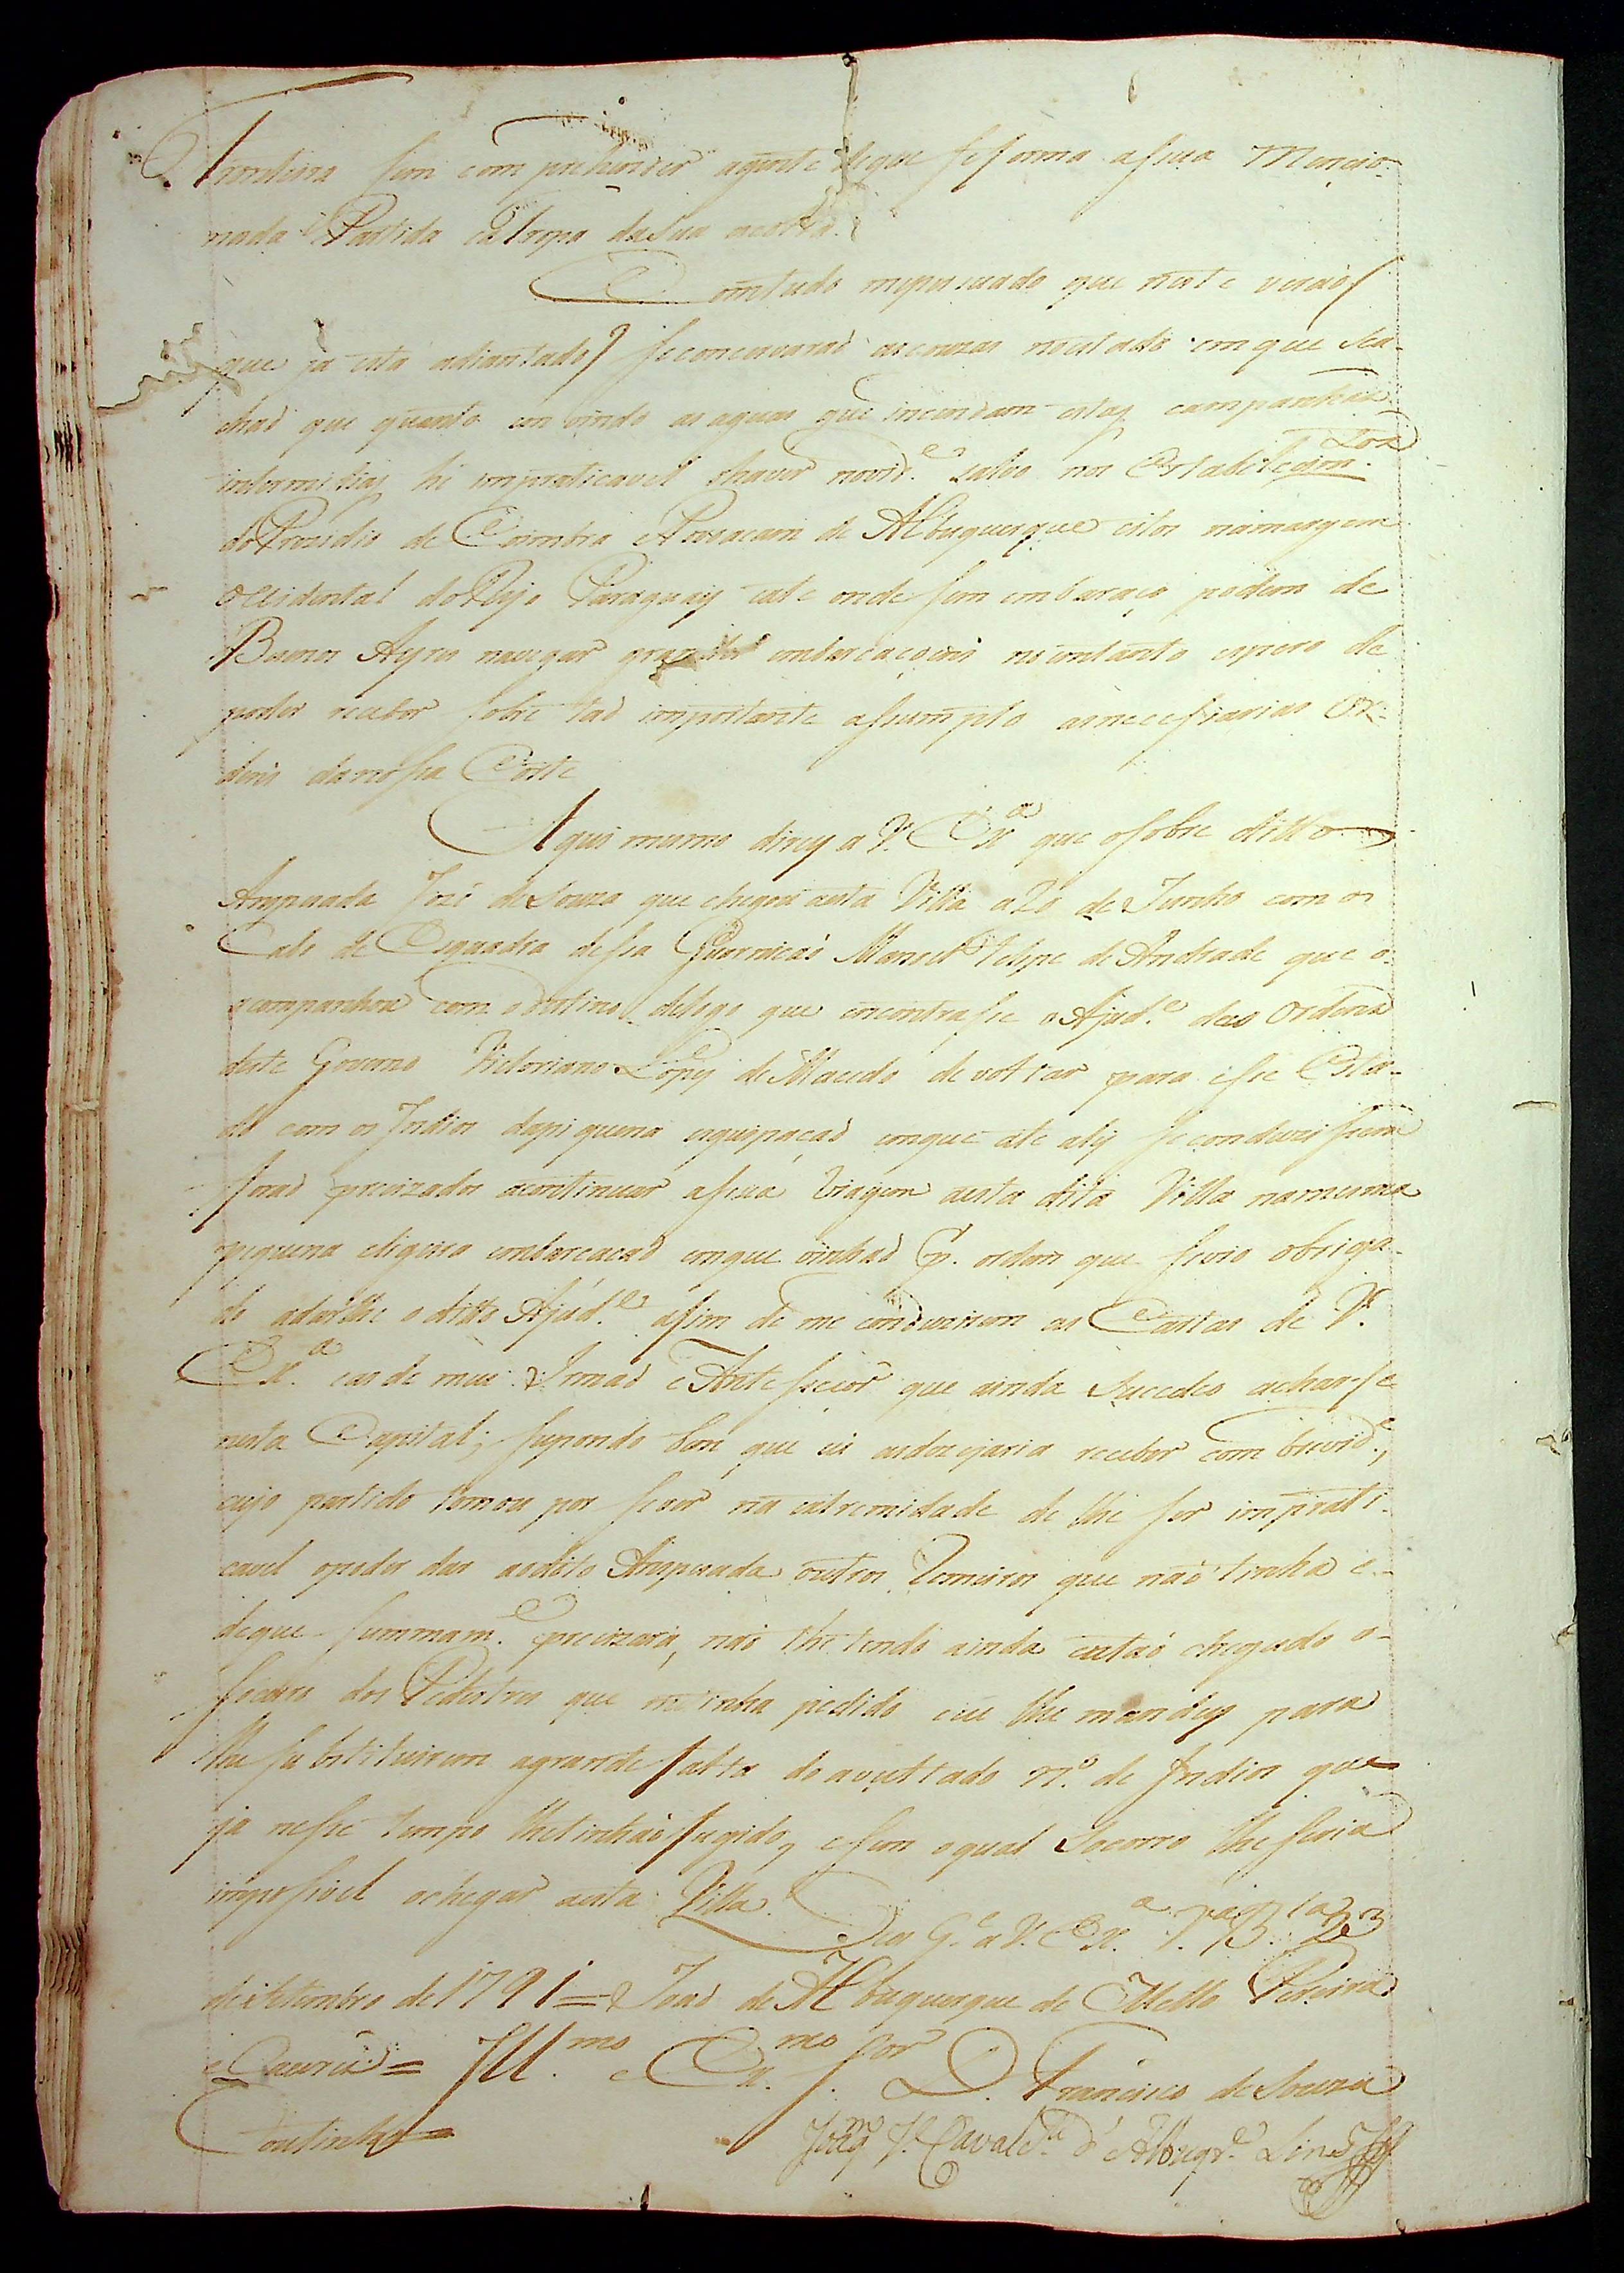 Fronteira sem comprehender agente deque seforma asua Mencio-
nada Partida eaTropa desua escolta.
Comtudo mepersuado que neste verão (
que já está adiantado) seconcervarão ascouzas noestado emque sea-
chão que quanto em vindo as aguas que inundam estas campanhas
intermedias hé impraticavel haver novid.e salvo nos Estabelecim.tos
do Prezidio de Coimbra e Povoacam de Albuquerque citos namargem
occidental do Rijo Paraguay até onde sem embaraço podem de
Buenos Ayres navegar grandes embarcaçoins noentanto espero de
poder receber sobre tão importante asumpto asnecessarias Or-
dens danossa Corte
Aqui mesmo direy a V. Ex.a que osobre ditto
Anspeçada José de Souza que chegou aesta Villa a20 de Junho com o
Cabo de Esquadra dessa Guarnicaó Manoel Felipe de Andrade que o
acompanhou com odestino delogo que encontrasse o Ajud.e das Ordens
deste Governo Victoriano Lopes de Macedo de voltar para esse Esta-
do com os Indios dapiquena esquipaçaõ emque até aly seconduzissem
foraõ precizados acontinuar asua Viagem aesta dita Villa namesma
pequena eligeira embarcacaõ emque vinhaõ p. ordem que sevio obriga-
do adarlhe o ditto Ajud.e afim de me conduzirem as Cartas de V.
Ex.a eas de meu Irmaõ e Antessecor que ainda sucedeo achar-se
nesta Capital; supondo bem que eu asdezejaria receber com brevid.e,
cujo partido tomou por sever na extremidade de lhe ser imprati-
cavel opoder dar aodito Anspesada outros Remeiros que naõ tinha e
deque summam.e precizava, naõ lhe tendo ainda entaõ chegado o
socorro dos Pedestres que me tinha pedido eeu lhe mandey para
lhe substituirem agrande falta do avultado n.o de Indios que
já nesse tempo lhetinhaõ fugido, esem oqual socorro lhe seria
impossivel ochegar aesta Villa. Deos G.e a V. Ex.a V.a B.a 23
deSetembro de 1791 = Joaõ de Albuquerque de Mello Pereira
eCaceres = Ill.mo e Ex.mo S.or D. Francisco de Souza
Coutinho =
Joaq.m J.e Cavalc.ti d'Albuq.e Lins